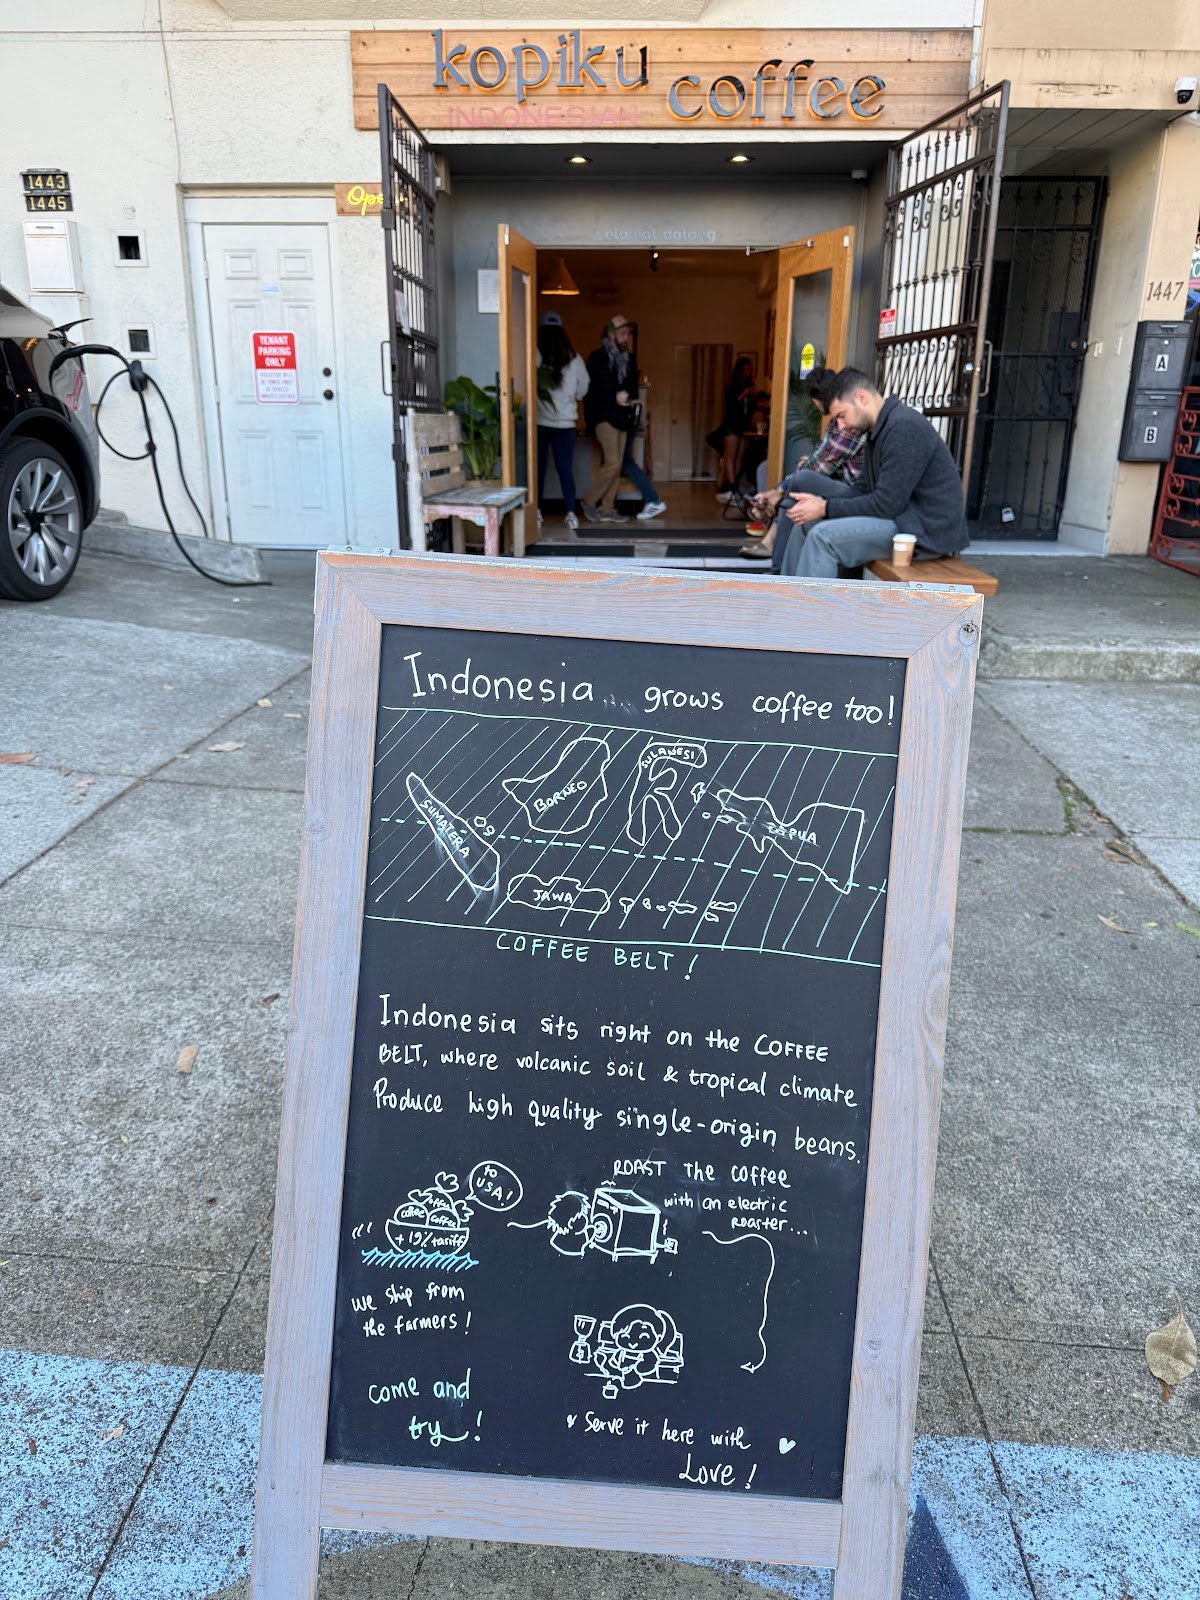 kopiku coffee
INDONESIAN
1443
1445
Open
selamat datang
TENANT
PARKING
ONLY
1447
A
B
Indonesia.... grows coffee too!
SUMATERA
BORNEO
SULAWESI
PAPUA
JAWA
COFFEE BELT!
Indonesia sits right on the COFFEE
BELT, where volcanic soil & tropical climate
Produce high quality single-origin beans.
to
USA!
coffee
coffee
coffee
+ 19% tariff
we ship from
the farmers!
ROAST THE COFFEE
with an electric
ROASTER...
come and
try!
Serve it here with
Love!